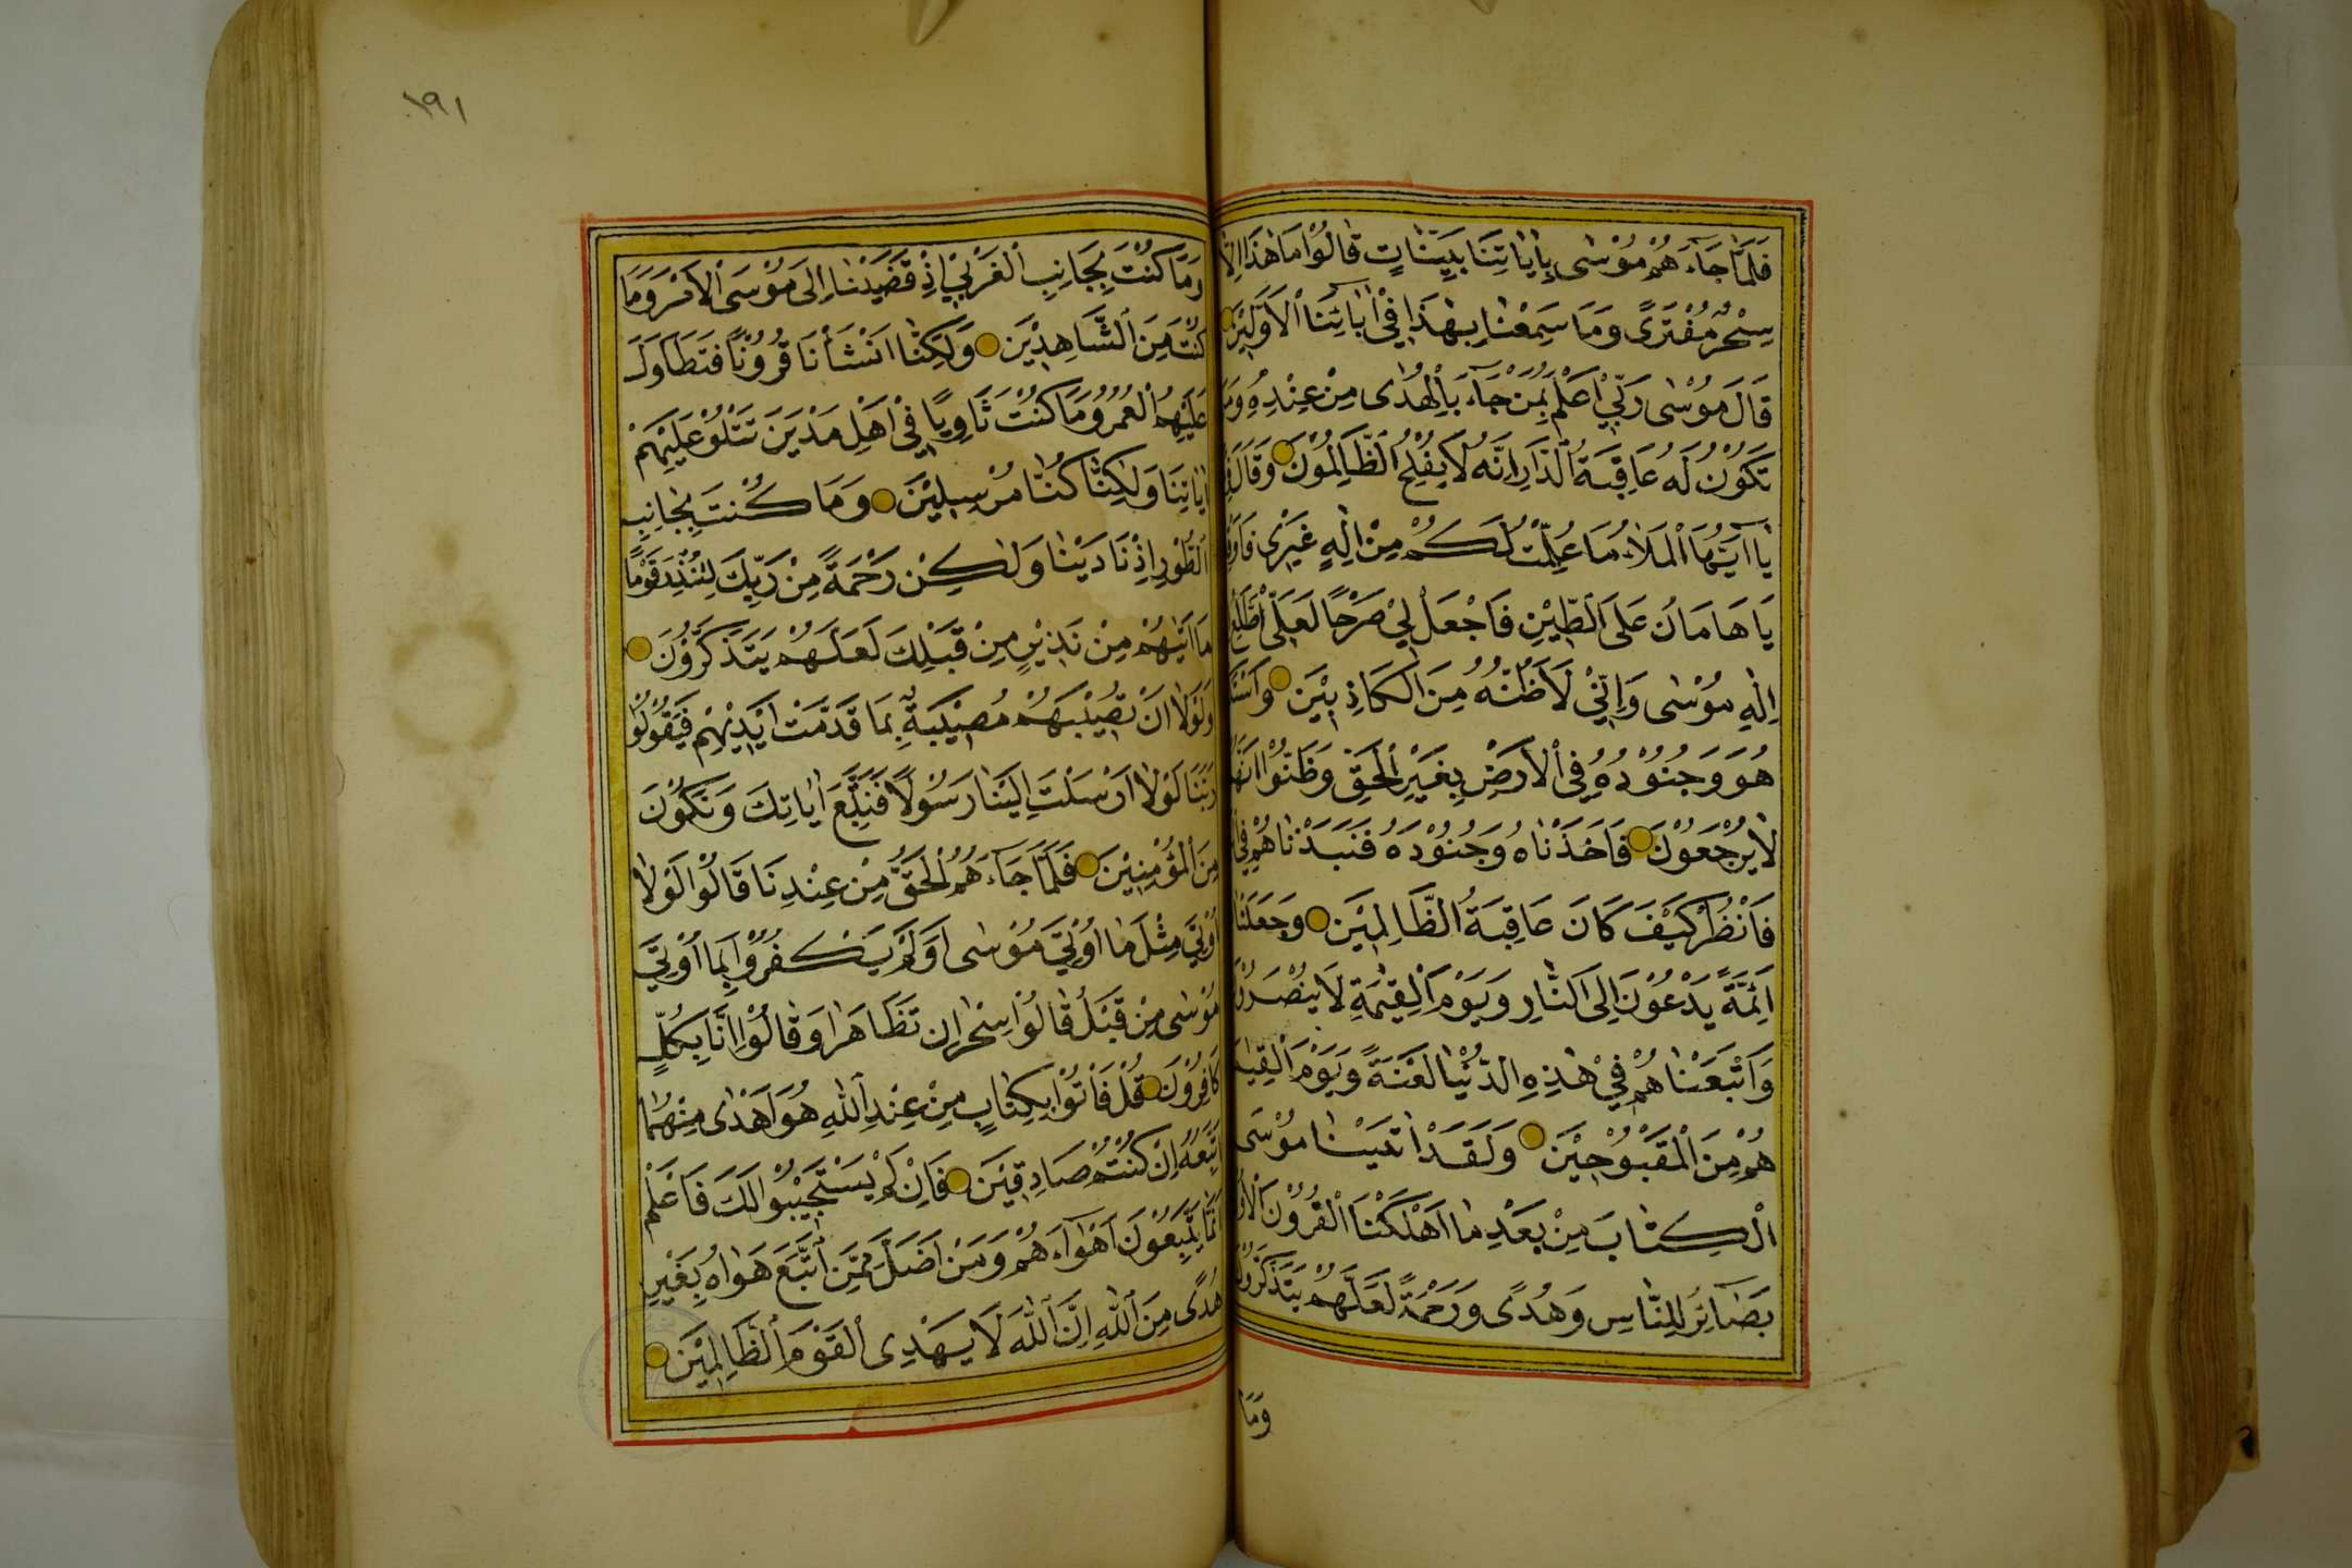 فَلَمَّا جَاءَهُمْ مُوْسٰى بِاٰيَاتِنَا بَيِّنَاتٍ قَالُوْا مَا هٰذَا اِلَّا
سِحْرٌ مُفْتَرًى وَمَا سَمِعْنَا بِهٰذَا فِيْ اٰبَائِنَا الْاَوَّلِيْنَ
قَالَ مُوْسٰى رَبِّيْ اَعْلَمُ بِمَنْ جَاءَ بِالْهُدٰى مِنْ عِنْدِهِ وَمَنْ
تَكُوْنُ لَهُ عَاقِبَةُ الدَّارِ اِنَّهُ لَا يُفْلِحُ الظَّالِمُوْنَ وَقَالَ
يَا اَيُّهَا الْمَلَاُ مَا عَلِمْتُ لَكُمْ مِنْ اِلٰهٍ غَيْرِى
يَا هَامَانُ عَلَى الطِّيْنِ فَاجْعَلْ لِيْ صَرْحًا لَعَلِّيْ اَطَّلِعُ
اِلٰهِ مُوْسٰى وَاِنِّيْ لَاَظُنُّهُ مِنَ الْكَاذِبِيْنَ
هُوَ وَجُنُوْدُهُ فِي الْاَرْضِ بِغَيْرِ الْحَقِّ وَظَنُّوْا اَنَّهُمْ
لَا يُرْجَعُوْنَ فَاَخَذْنَاهُ وَجُنُوْدَهُ فَنَبَذْنَاهُمْ فِي
فَانْظُرْ كَيْفَ كَانَ عَاقِبَةُ الظَّالِمِيْنَ وَجَعَلْنَا
اَئِمَّةً يَدْعُوْنَ اِلَى النَّارِ وَيَوْمَ الْقِيٰمَةِ لَا يُنْصَرُوْنَ
وَاَتْبَعْنَاهُمْ فِيْ هٰذِهِ الدُّنْيَا لَعْنَةً وَيَوْمَ الْقِيَامَةِ
هُمْ مِنَ الْمَقْبُوْحِيْنَ وَلَقَدْ اٰتَيْنَا مُوْسَى
الْكِتَابَ مِنْ بَعْدِ مَا اَهْلَكْنَا الْقُرُوْنَ الْاُولٰى
بَصَائِرَ لِلنَّاسِ وَهُدًى وَرَحْمَةً لَعَلَّهُمْ يَتَذَكَّرُوْنَ
وَمَا
١٩١
وَمَا كُنْتَ بِجَانِبِ الْغَرْبِيِّ اِذْ قَضَيْنَا اِلَى مُوْسَى الْاَمْرَ وَمَا
كُنْتَ مِنَ الشَّاهِدِيْنَ وَلٰكِنَّا اَنْشَأْنَا قُرُوْنًا فَتَطَاوَلَ
عَلَيْهِمُ الْعُمُرُ وَمَا كُنْتَ ثَاوِيًا فِيْ اَهْلِ مَدْيَنَ تَتْلُوْ عَلَيْهِمْ
اٰيَاتِنَا وَلٰكِنَّا كُنَّا مُرْسِلِيْنَ وَمَا كُنْتَ بِجَانِبِ
الطُّوْرِ اِذْ نَادَيْنَا وَلٰكِنْ رَحْمَةً مِنْ رَبِّكَ لِتُنْذِرَ قَوْمًا
مَا اَتٰيهُمْ مِنْ نَذِيْرٍ مِنْ قَبْلِكَ لَعَلَّهُمْ يَتَذَكَّرُوْنَ
وَلَوْلَا اَنْ تُصِيْبَهُمْ مُصِيْبَةٌ بِمَا قَدَّمَتْ اَيْدِيْهِمْ فَيَقُوْلُوْا
رَبَّنَا لَوْلَا اَرْسَلْتَ اِلَيْنَا رَسُوْلًا فَنَتَّبِعَ اٰيَاتِكَ وَنَكُوْنَ
مِنَ الْمُؤْمِنِيْنَ فَلَمَّا جَاءَهُمُ الْحَقُّ مِنْ عِنْدِنَا قَالُوْا لَوْلَا
اُوْتِيَ مِثْلَ مَا اُوْتِيَ مُوْسٰى اَوَلَمْ يَكْفُرُوْا بِمَا اُوْتِيَ
مُوْسٰى مِنْ قَبْلُ قَالُوْا سِحْرَانِ تَظَاهَرَا وَقَالُوْا اِنَّا بِكُلٍّ
كَافِرُوْنَ قُلْ فَأْتُوْا بِكِتَابٍ مِنْ عِنْدِ اللّٰهِ هُوَ اَهْدٰى مِنْهُمَا
اَتَّبِعْهُ اِنْ كُنْتُمْ صَادِقِيْنَ فَاِنْ لَمْ يَسْتَجِيْبُوْا لَكَ فَاعْلَمْ
اَنَّمَا يَتَّبِعُوْنَ اَهْوَاءَهُمْ وَمَنْ اَضَلُّ مِمَّنِ اتَّبَعَ هَوَاهُ بِغَيْرِ
هُدًى مِنَ اللّٰهِ اِنَّ اللّٰهَ لَا يَهْدِى الْقَوْمَ الظَّالِمِيْنَ